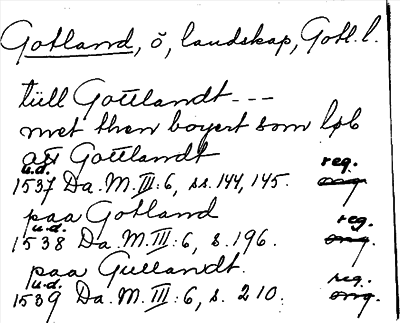 Gotland, ö, landskap, Gotl. l.
tüll Gottlandt ---
met then boyert som lob
aff Gottlandt
u.d. reg.
1537 Da. M. III: 6, ss. 144, 145. ong.
paa Gotland
u.d. reg.
1538 Da. M. III: 6, s. 196. ong.
paa Gullandt.
u.d. reg.
1539 Da. M. III: 6, s. 210. ong.